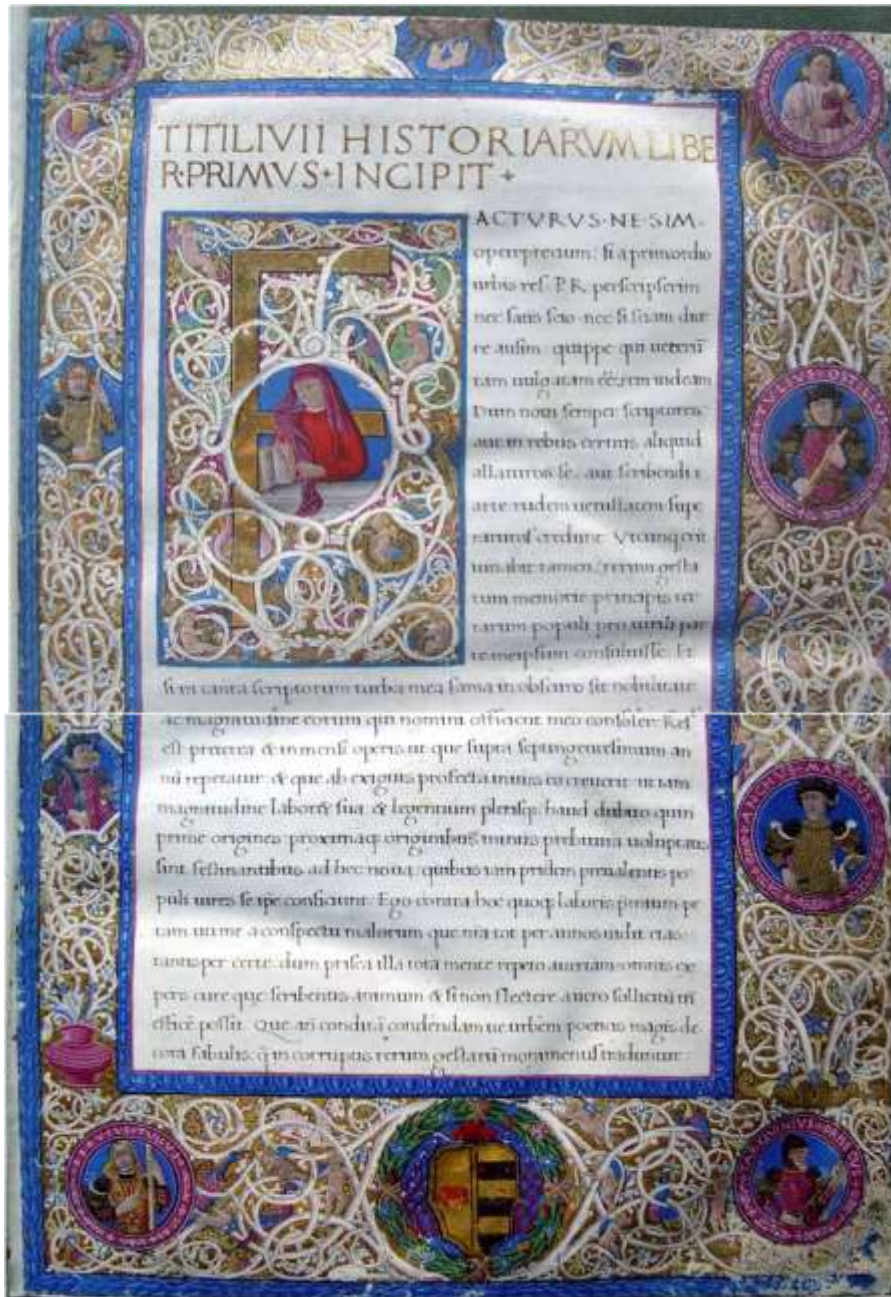 TITI LIVII HISTORIARVM LIBE
R·PRIMVS·INCIPIT
ACTVRVS·NE·SIM·
operepretium: si a primordio
urbis res P. R. perscripserim
nec satis scio· nec si sciam dice
re ausim· quippe qui
tam uulgatam rem uideam
Dum noui semper scriptores
aut in rebus certius aliquid
allaturos se aut scribendi
arte rudem uetustatem supe
raturos credunt Vtcunq; erit
iuuabit tamen rerum gesta
rum memorie principis ter
rarum populi pro uirili par
te meipsum consuluisse Et
si in tanta scriptorum turba mea fama in obscuro sit nobilitate
ac magnitudine eorum qui nomini officient meo consoler. Res
est preterea & inmensi operis ut que supra septingentesimum an
num repetatur & que ab exiguis profecta initiis eo creuerit ut iam
magnitudine laboret sua & legentium plerisq; haud dubito quin
prime origines proximaq; originibus minus prebitura uoluptatis
sint festinantibus ad hec noua quibus iam pridem preualentis po
puli uires se ipse conficiunt Ego contra hoc quoq; laboris premium pe
tam ut me a conspectu malorum que tot per annos uidit etas
tantisper certe dum prisca illa tota mente repeto auertam omnis ex
pers cure que scribentis animum & si non flectere a uero sollicitum
efficere possit Que condendam ue urbem poeticis magis de
cora fabulis q in corruptis rerum gestarum monumentis traduntur
NVMA POMPILIO
TVLIVS OSTI
ANCHVS MARTIVS
SERVIVS TVLIVS
TARQVINIVS PRISCVS